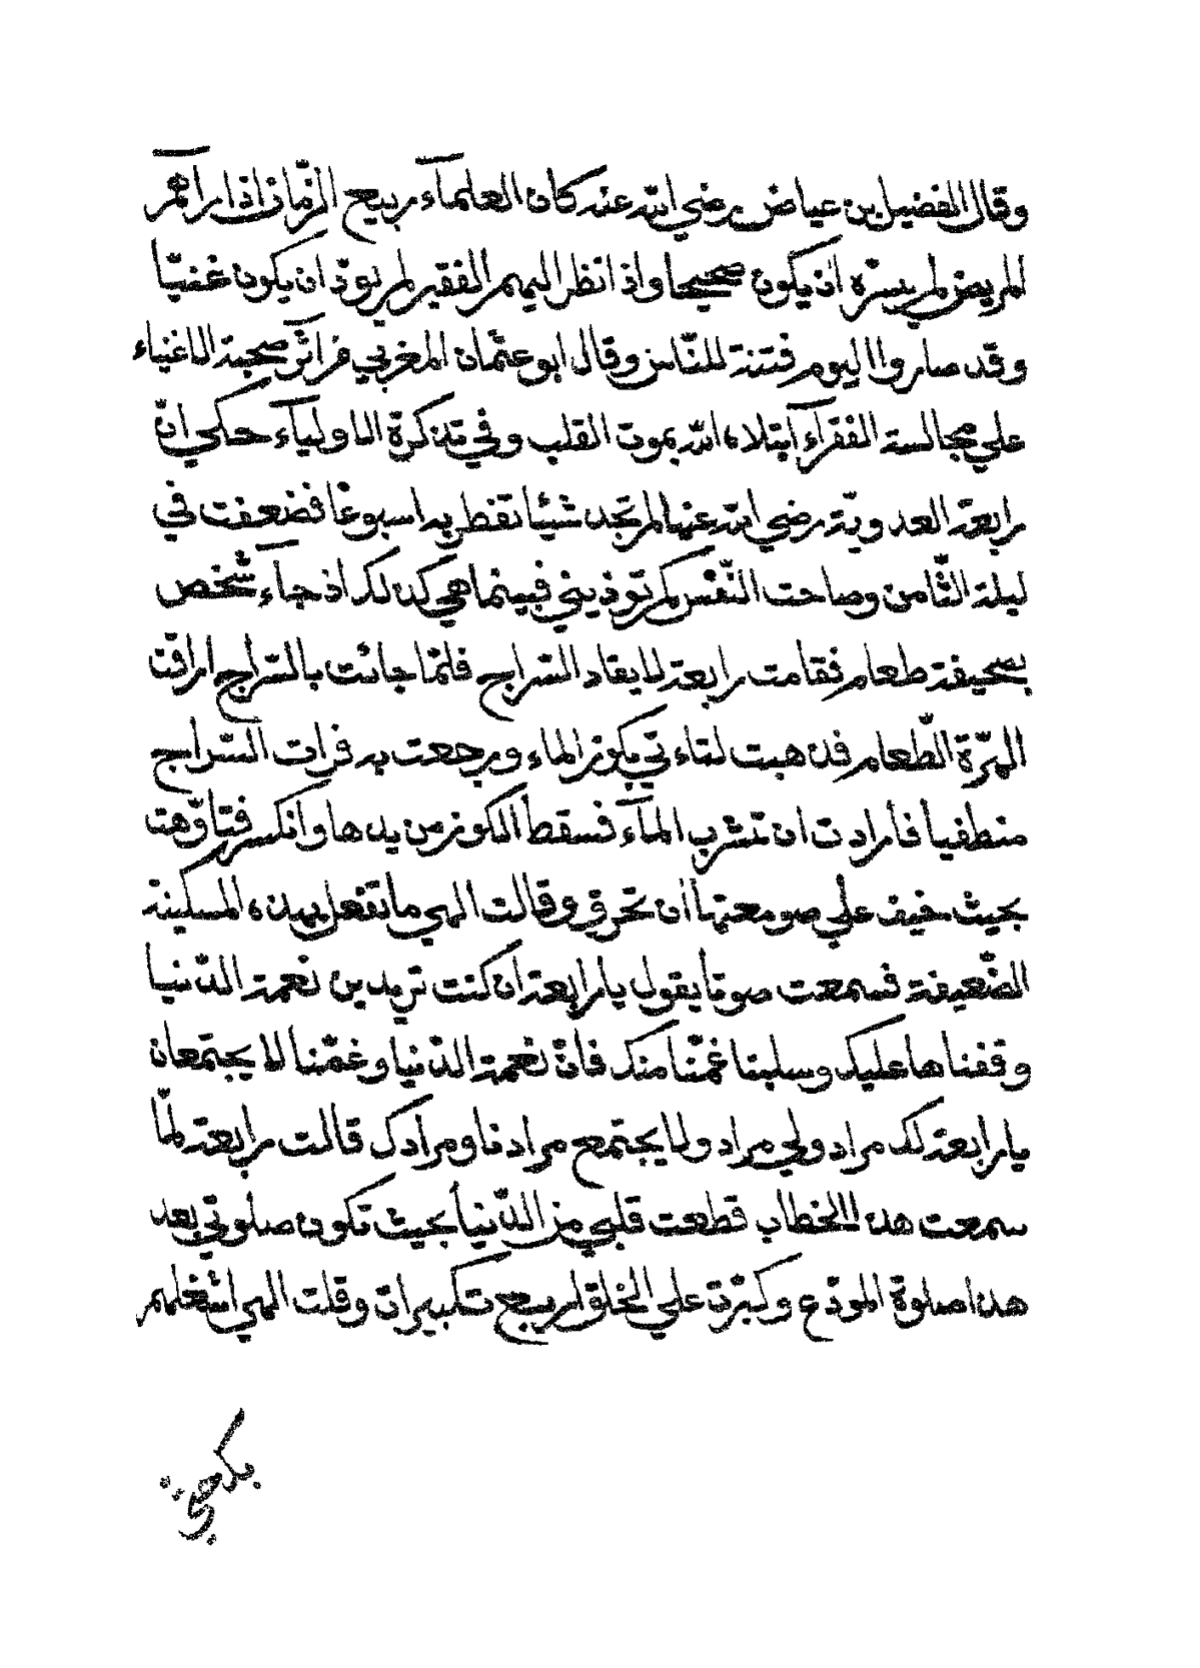 وقال الفضيل بن عياض رضي الله عنه كان العلمآء ربيع الزّمان اذا رآهم
المريض لم يسرّه ان يكون صحيحا واذا نظر اليهم الفقير لم يودّ ان يكون غنيّا
وقد صاروا اليوم فتنة للنّاس وقال ابو عثمان المغربي من آثر صحبة الاغنياء
علي مجالسة الفقرآء آبتلاه الله بموت القلب وفي تذكرة الاوليآء حكي انّ
رابعة العدويّة رضي الله عنها لم تجد شيئا تفطر به اسبوعًا فضعفت في
ليلة الثّامن وصاحت النّفس كم تؤذيني فبينما هي كذلك اذ جآء شخص
بصحيفة طعام فقامت رابعة لايقاد السّراج فلمّا جائت بالسّراج اراقت
الهرّة الطّعام فذهبت لتاءتي بكوز الماء ورجعت به فرات السّراج
منطفيأ فأرادت ان تشرب المآء فسقط الكوز من يدها وانكسر فتاوّهت
بحيث خيف علي صومعتها ان تحرق وقالت الهي ما تفعل بهذه المسكينة
الضّعيفة فسمعت صوتا يقول يا رابعة ان كنت تريدين نعمة الدّنيا
وقفناها عليك وسلبنا غمّنا منك فانّ نعمة الدّنيا وغمّنا لا يجتمعان
يا رابعة لك مراد ولي مراد ولا يجتمع مرادنا ومرادك قالت رابعة لمّا
سمعت هذا الخطاب قطعت قلبي من الدّنيا بحيث تكون صلوتي بعد
هذا صلوة المودّع وكبّرت علي الخلق اربع تكبيرات وقلت الهي اشغلهم